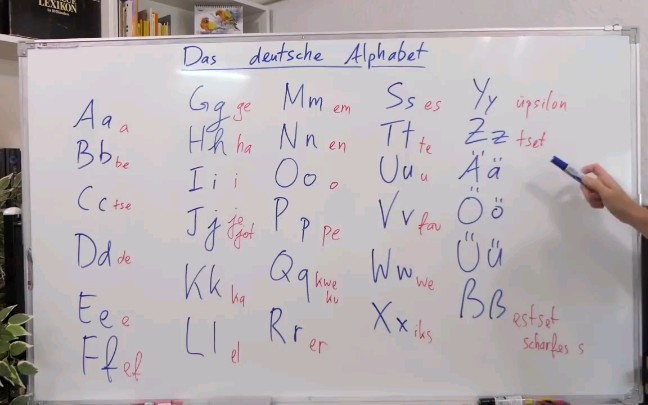 LEXIKON
Das deutsche Alphabet
A a a
B b be
C c tse
D d de
E e e
F f ef
G g ge
H h ha
I i i
J j je
jot
K k ka
L l el
M m em
N n en
O o o
P p pe
Q q kwe
ku
R r er
S s es
T t te
U u u
V v fau
W w we
X x iks
Y y üpsilon
Z z tset
Ä ä
Ö ö
Ü ü
ß ß estset
scharfes s